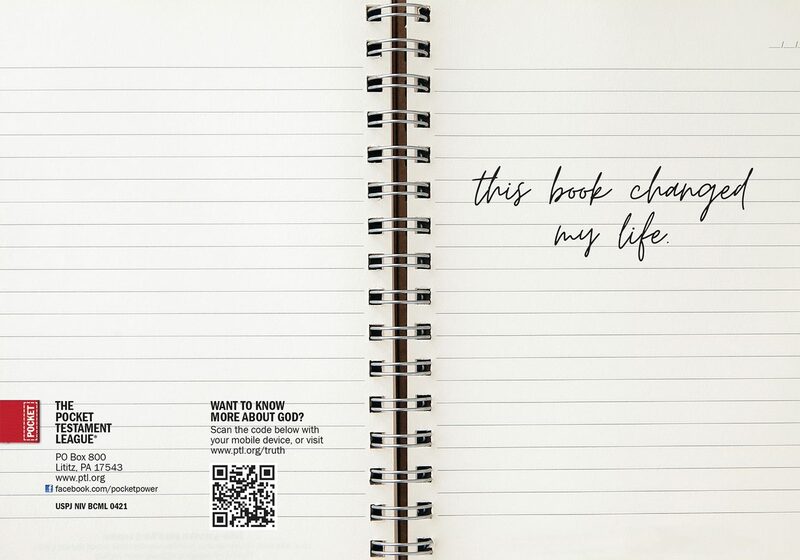 POCKET
THE
POCKET
TESTAMENT
LEAGUE®
PO Box 800
Lititz, PA 17543
www.ptl.org
facebook.com/pocketpower
USPJ NIV BCML 0421
WANT TO KNOW
MORE ABOUT GOD?
Scan the code below with
your mobile device, or visit
www.ptl.org/truth
this book changed
my life.